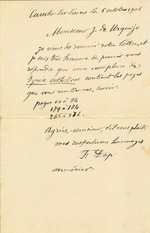 Cambo-les-Bains le 6 octobre 1908
Monsieur J. de Urquijo
Je viens de recevoir votre lettre et
je suis très heureux de pouvoir vous
répondre que mon exemplaire de
contient les pages
que vous mentionnez, savoir
pages 61 à 94
179 à 184
265 à 276.
Agréez, Monsieur, s'il vous plaît
mes respectueux hommages